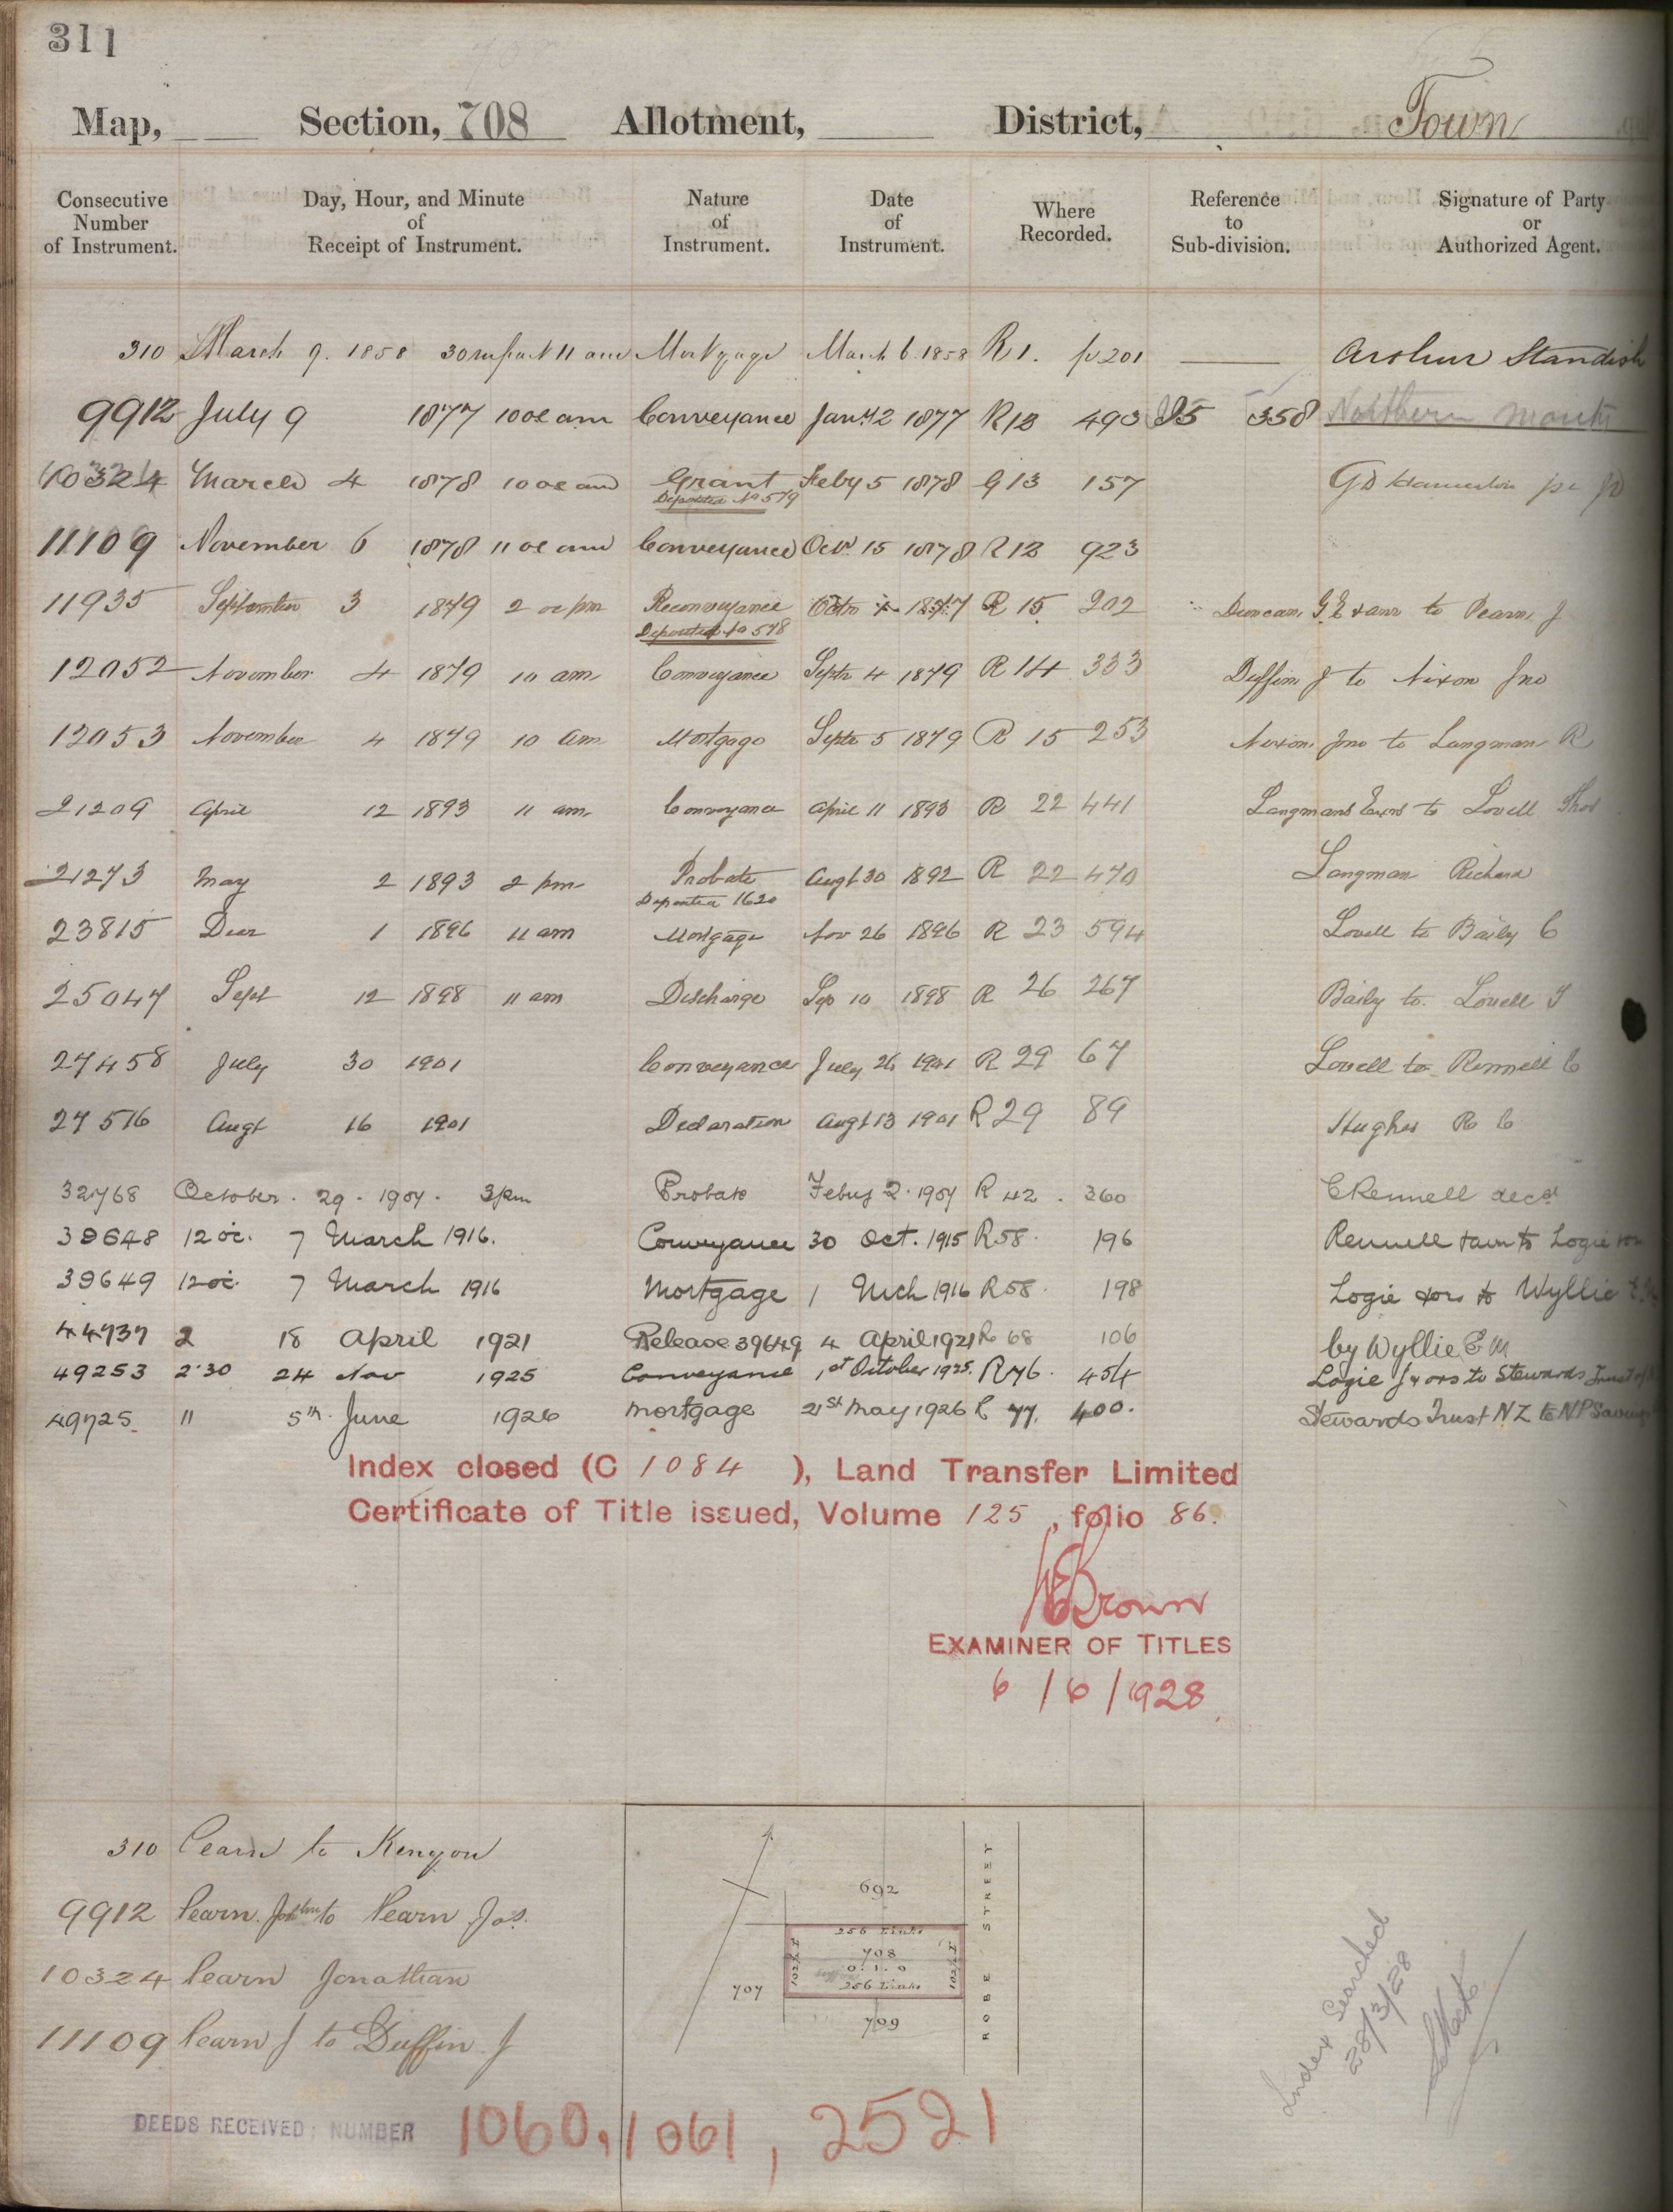 311
Map, Section, 708 Allotment, District, Town
Consecutive Number of Instrument. Day, Hour, and Minute of Receipt of Instrument. Nature of Instrument. Date of Instrument. Where Recorded. Reference to Sub-division. Signature of Party or Authorized Agent.
310 March 9. 1858 30 m past 11 am Mortgage March 6 1858 R 1. p 201 Arthur Standish
9912 July 9 1877 10 oc am Conveyance Jany 2 1877 R 13 493 358 Northern
10324 March 4 1878 10 oc am Grant Feby 5 1878 G 13 157
Deposited No 579
11109 November 6 1878 11 oc am Conveyance Oct 15 1878 R 13 923
11935 September 3 1879 2 oc pm Reconveyance 1877 R 15 202 Duncan, G. E & anr to Pearn, J
Deposited No 578
12052 November 4 1879 10 am Conveyance Septr 4 1879 R 14 333 Duffin J to Nixon Jno
12053 November 4 1879 10 am Mortgage Septr 5 1879 R 15 253 Nixon Jno to Langman R
21209 April 12 1893 11 am Conveyance April 11 1893 R 22 441 Langmans Exors to Lovell Thos
21273 May 2 1893 2 pm Probate Augt 30 1892 R 22 470 Langman Richard
Deposited 1620
23815 Decr 1 1896 11 am Mortgage Nov 26 1896 R 23 594 Lovell to Baily C
25047 Sept 12 1898 11 am Discharge Sep 10 1898 R 26 267 Baily to Lovell T
27458 July 30 1901 Conveyance July 26 1901 R 29 67 Lovell to Rennell C
27516 Augt 16 1901 Declaration Augt 13 1901 R 29 89 Hughes R C
32768 October. 29. 1907. 3 pm Probate Feby 2. 1907 R 42. 360 C Rennell decd
39648 12 oc. 7 March 1916. Conveyance 30 Oct. 1915 R 58. 196 Rennell & anr to Logie
39649 12 oc. 7 March 1916 Mortgage 1 Mch 1916 R 58. 198 Logie & ors to Wyllie
44737 2 18 April 1921 Release 39649 4 April 1921 R 68 106 by Wyllie E M
49253 2.30 24 Nov 1925 Conveyance 1st October 1925. R 76. 454 Logie J & ors to Stewards Trust of
49725 11 5th June 1926 Mortgage 21st May 1926 R 77. 400. Stewards Trust N Z to N P Savings
Index closed (C 1084 ), Land Transfer Limited
Certificate of Title issued, Volume 125, folio 86.
Brown
EXAMINER OF TITLES
6/6/1928.
310 Pearn to Kenyon
9912 Pearn to Pearn Jos.
10324 Pearn Jonathan
11109 Pearn J to Duffin J
692
256 Links
708
0. 1. 0
256 Links
707
709
ROBE STREET
Index Searched
28/3/28
DEEDS RECEIVED; NUMBER 1060, 1061, 2521